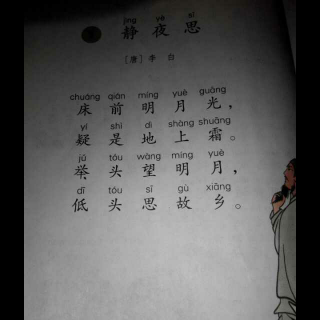 jìng yè sī
静夜思
[唐] 李白
chuáng qián míng yuè guāng
床前明月光，
yí shì dì shàng shuāng
疑是地上霜。
jǔ tóu wàng míng yuè
举头望明月，
dī tóu sī gù xiāng
低头思故乡。